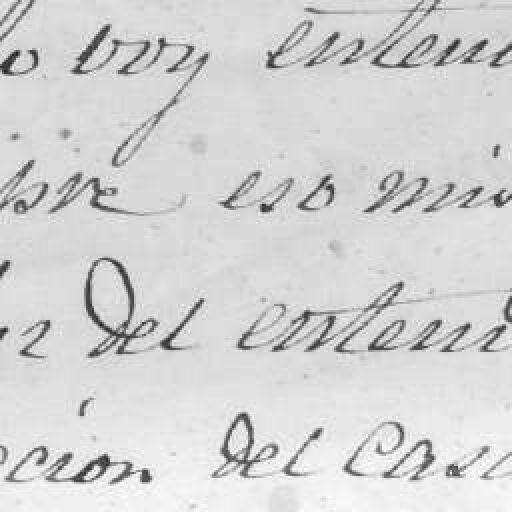 lo voy enten
eso mis
del enten
cion del casa